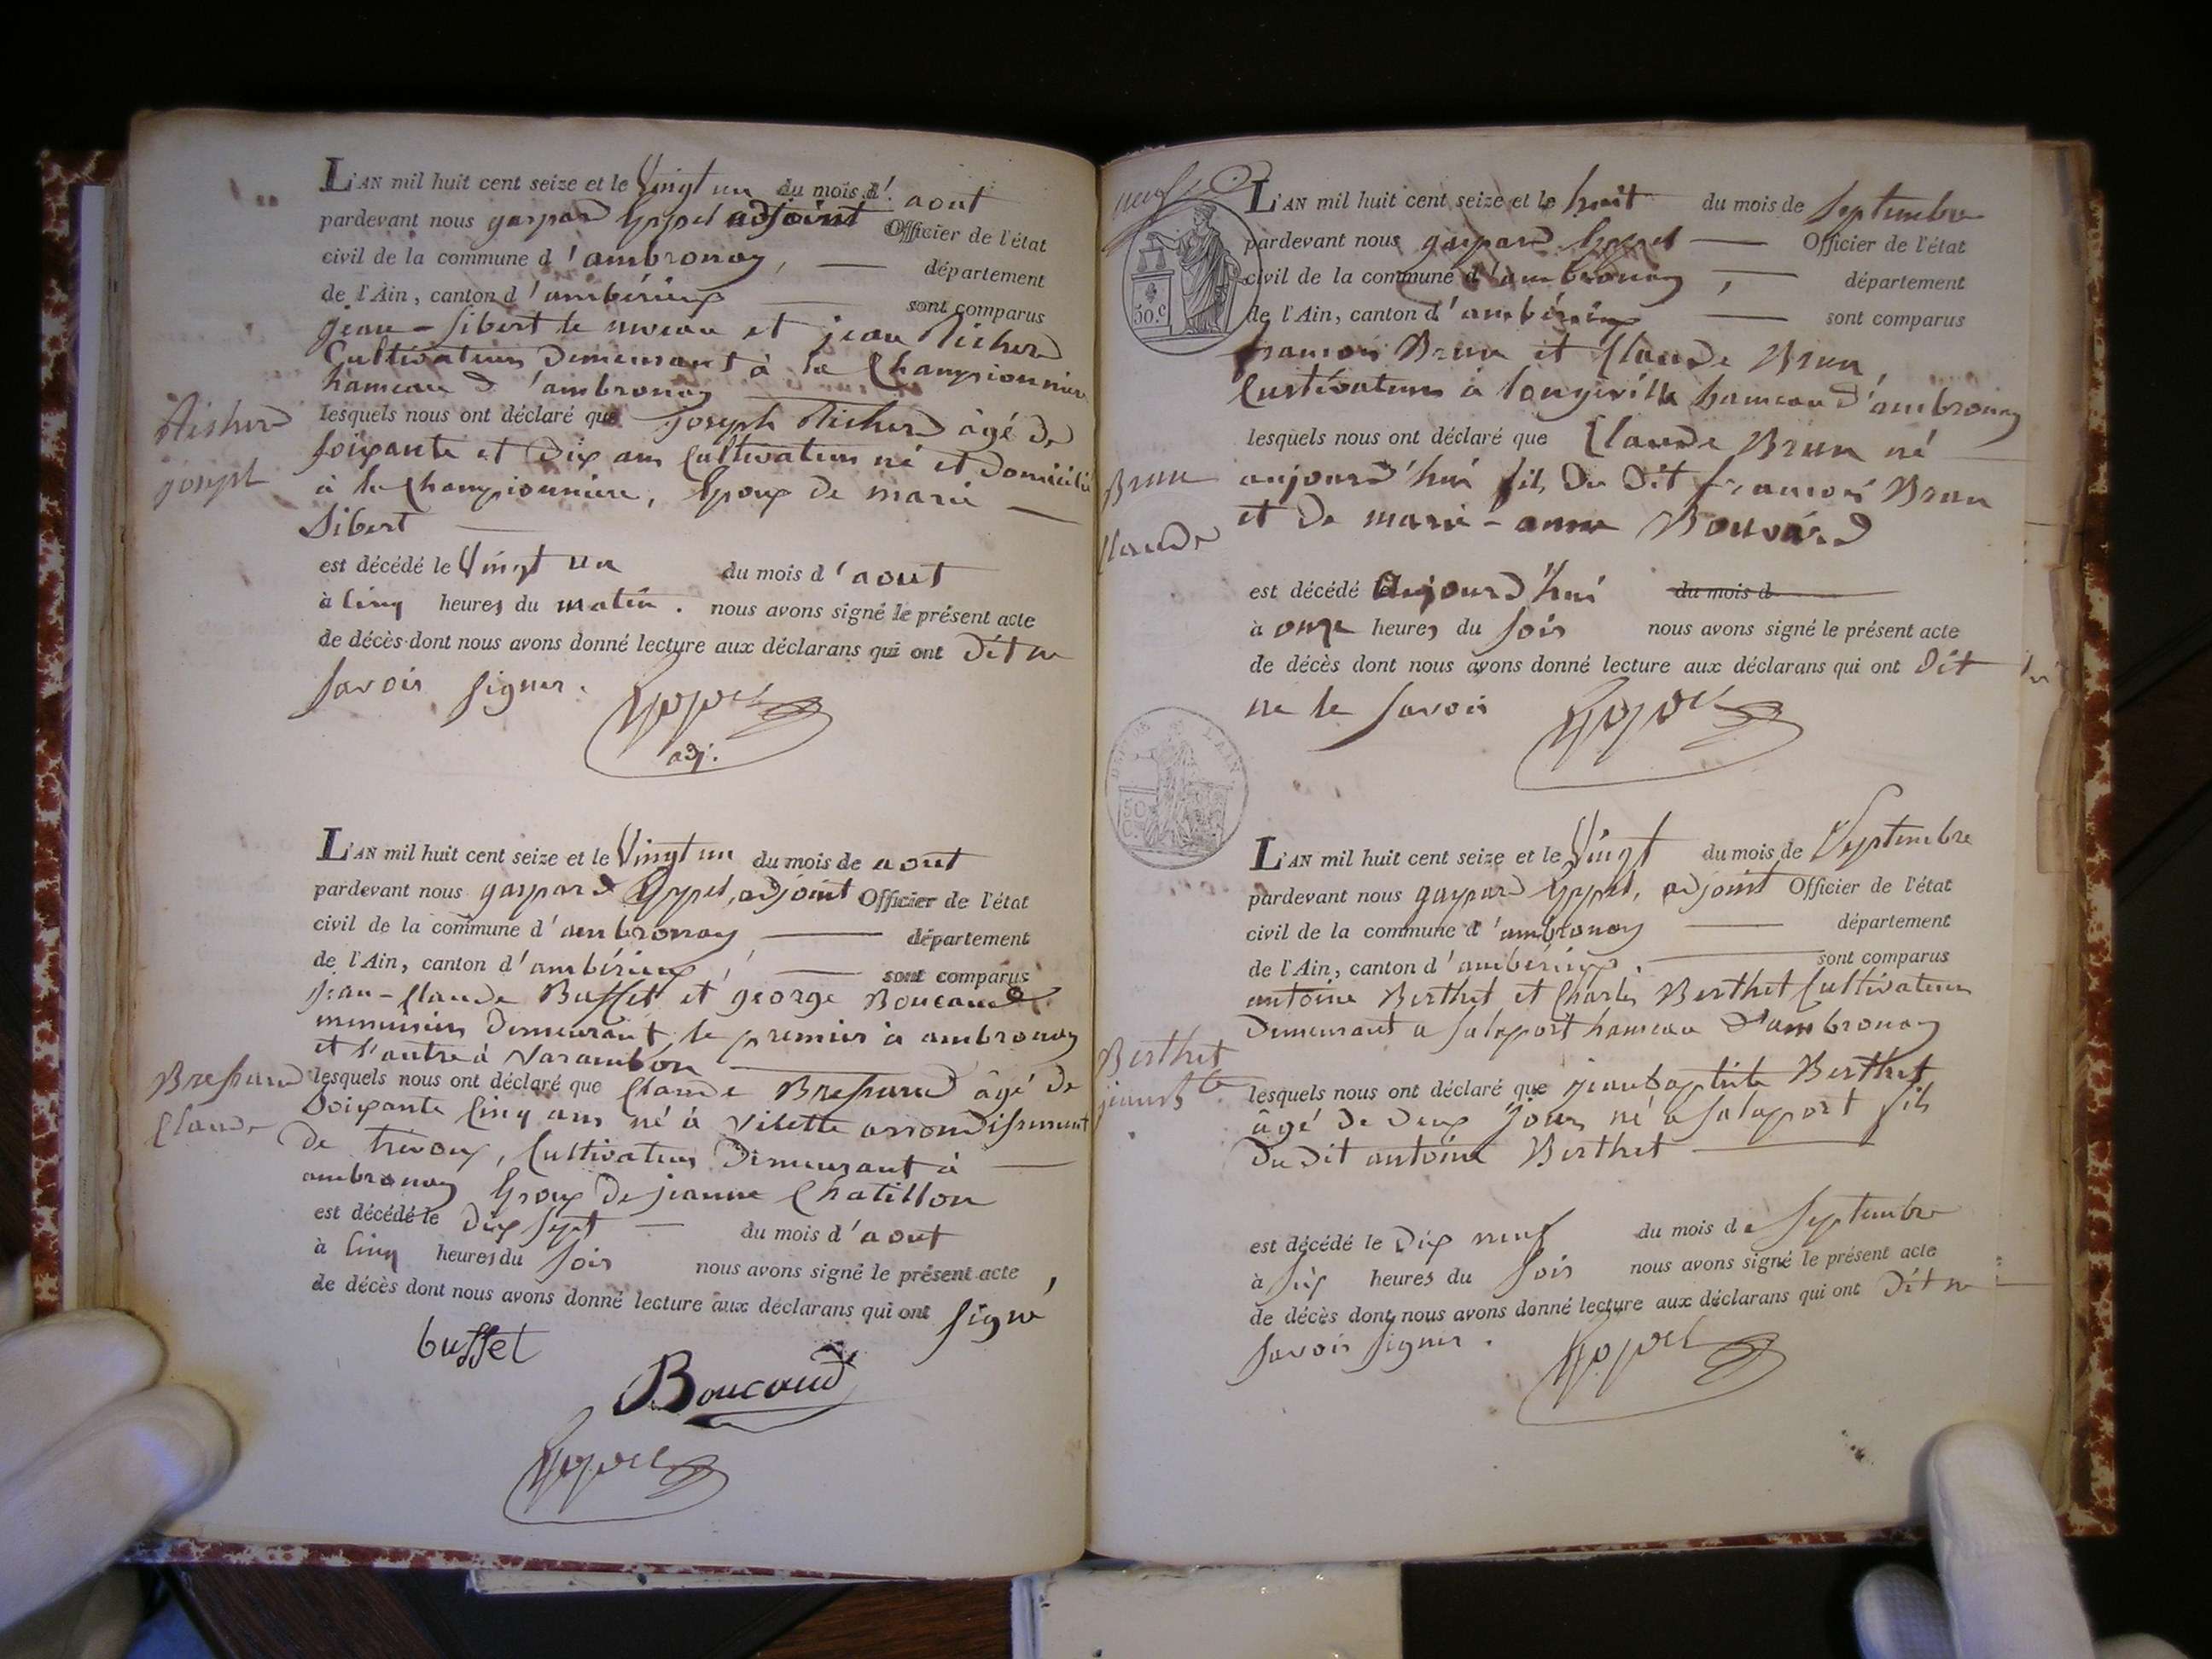 L'AN mil huit cent seize et le Vingt un du mois d'. aout
pardevant nous gaspard Eyssel adjoint Officier de l'état
civil de la commune d'ambronay, département
de l'Ain, canton d'ambérieux sont comparus
jean-Sibert le et jean Richerd
Cultivateurs Demeurant à la Championniere
hameau d'ambronay
Richerd
joseph
lesquels nous ont déclaré que joseph Richerd âgé de
soixante et Dix ans Cultivateur né et Domicilié
à la Championniere, Epoux de marie
Sibert
est décédé le Vingt un du mois d'aout
à Cinq heures du matin. nous avons signé le présent acte
de décès dont nous avons donné lecture aux déclarans qui ont Dit ne
savoir signer.
adj.
L'AN mil huit cent seize et le Vingt un du mois de aout
pardevant nous gaspard Eyssel, adjoint Officier de l'état
civil de la commune d'ambronay département
de l'Ain, canton d'ambérieux, sont comparus
jean-Claude Buffet et george Boucaud
menuisiers Demeurant le premier à ambronay
et l'autre à Varambon
Bressand
Claude
lesquels nous ont déclaré que Claude Bressand âgé de
Soixante Cinq ans né à Vilette arrondissement
de trevoux, Cultivateur Demeurant à
ambronay Epoux De jeanne Chatillon
est décédé le Dix sept du mois d'aout
à Cinq heures du soir nous avons signé le présent acte,
de décès dont nous avons donné lecture aux déclarans qui ont signé
buffet
Boucaud
neuf
30.C
L'AN mil huit cent seize et le huit du mois de Septembre
pardevant nous gaspard Eyssel Officier de l'état
civil de la commune d'ambronay, département
de l'Ain, canton d'ambérieux sont comparus
francois Brun et Claude Brun,
Cultivateurs à longeville hameau d'ambronay
Brun
Claude
lesquels nous ont déclaré que Claude Brun né
aujourd'hui fils Du Dit francois Brun
et De marie-anne Bouvard
est décédé aujourd'hui du mois d
à onze heures du soir nous avons signé le présent acte
de décès dont nous avons donné lecture aux déclarans qui ont Dit
ne le savoir
DEP. DE L'AIN
50 C.
L'AN mil huit cent seize et le Vingt du mois de Septembre
pardevant nous gaspard Eyssel, adjoint Officier de l'état
civil de la commune d'ambronay département
de l'Ain, canton d'ambérieux. sont comparus
antoine Berthet et Charles Berthet Cultivateurs
Demeurant a Salaport hameau D'ambronay
Berthet
jean Bte
lesquels nous ont déclaré que jean baptiste Berthet
âgé De Deux jours né a Salaport fils
Du Dit antoine Berthet
est décédé le Dix neuf du mois de Septembre
à six heures du soir nous avons signé le présent acte
de décès dont nous avons donné lecture aux déclarans qui ont Dit ne
savoir signer.